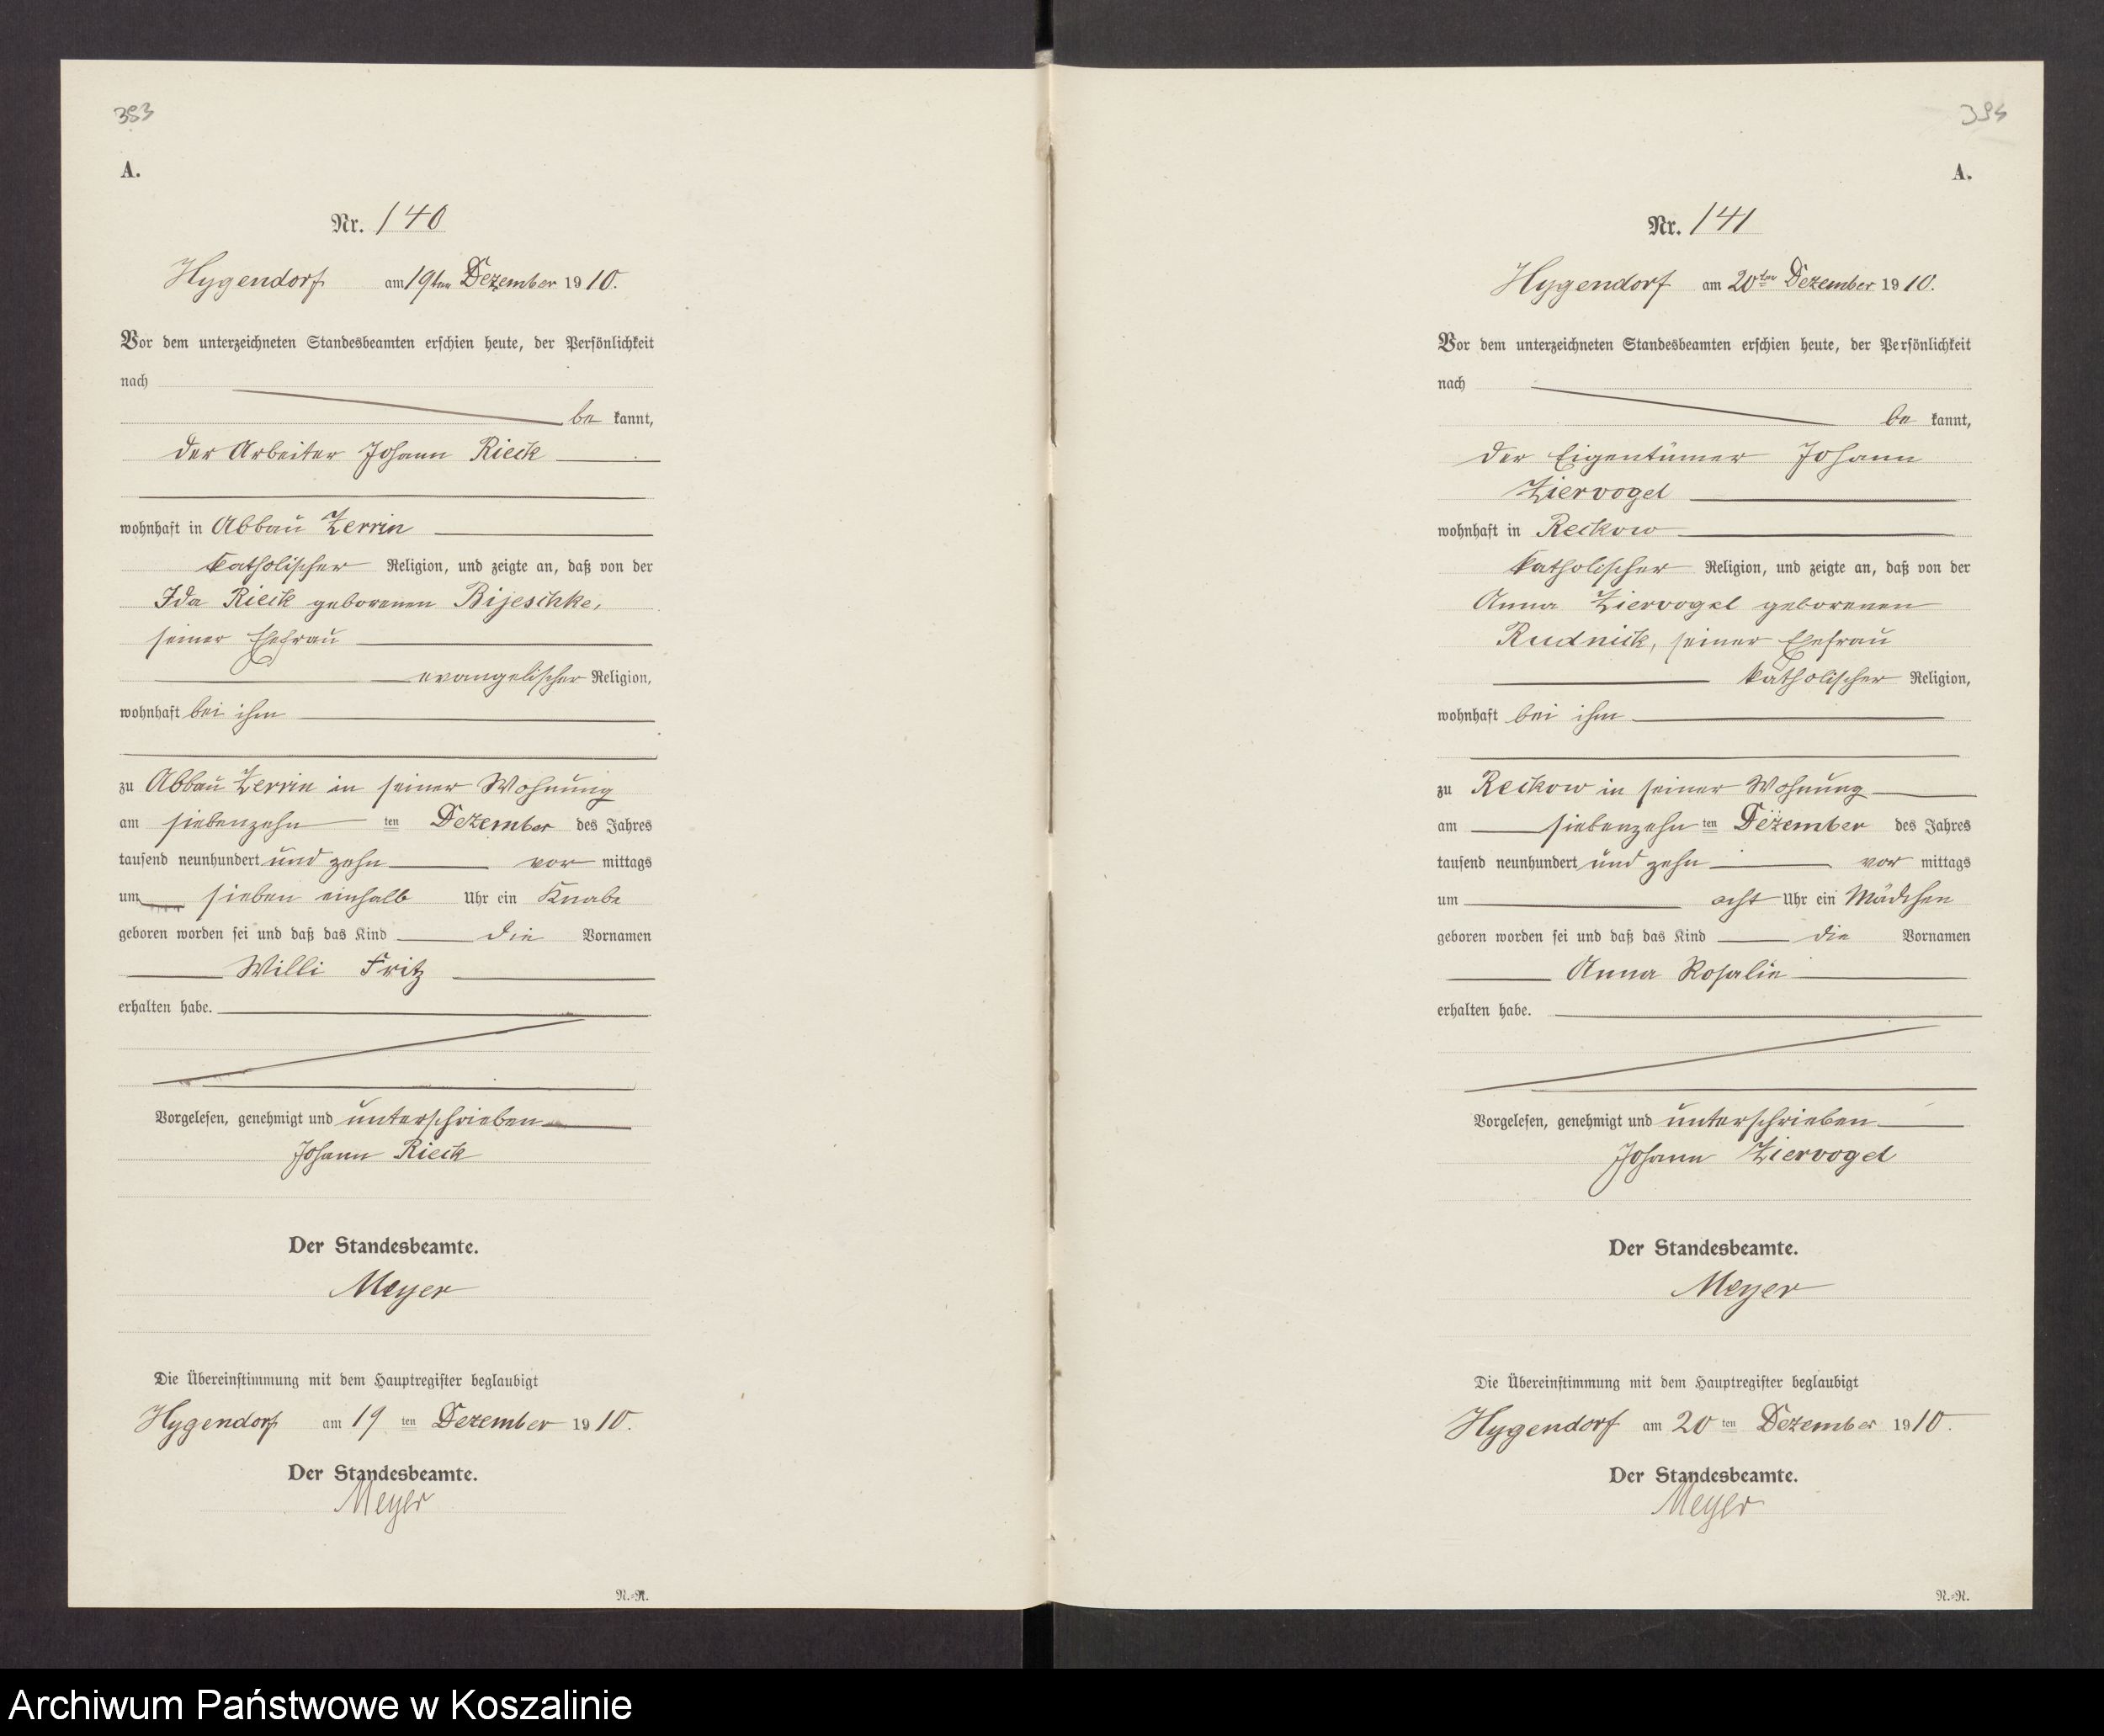 393
A.
Nr. 140
Hygendorf am 19ten Dezember 1910.
Vor dem unterzeichneten Standesbeamten erschien heute, der Persönlichkeit
nach
be kannt,
der Arbeiter Johann Rieck
wohnhaft in Abbau Zerrin
katholischer Religion, und zeigte an, daß von der
Ida Rieck geborenen Bijeschke,
seiner Ehefrau
evangelischer Religion,
wohnhaft bei ihm
zu Abbau Zerrin in seiner Wohnung
am siebenzehn ten Dezember des Jahres
tausend neunhundert und zehn vor mittags
um sieben einhalb Uhr ein Knabe
geboren worden sei und daß das Kind die Vornamen
Willi Fritz
erhalten habe.
Vorgelesen, genehmigt und unterschrieben
Johann Rieck
Der Standesbeamte.
Meyer
Die Übereinstimmung mit dem Hauptregister beglaubigt
Hygendorf am 19 ten Dezember 1910.
Der Standesbeamte.
Meyer
N.-N.
394
A.
Nr. 141
Hygendorf am 20ten Dezember 1910.
Vor dem unterzeichneten Standesbeamten erschien heute, der Persönlichkeit
nach
be kannt,
der Eigentümer Johann
Ziervogel
wohnhaft in Reckow
katholischer Religion, und zeigte an, daß von der
Anna Ziervogel geborenen
Rudnick, seiner Ehefrau
katholischer Religion,
wohnhaft bei ihm
zu Reckow in seiner Wohnung
am siebenzehn ten Dezember des Jahres
tausend neunhundert und zehn vor mittags
um acht Uhr ein Mädchen
geboren worden sei und daß das Kind die Vornamen
Anna Rosalie
erhalten habe.
Vorgelesen, genehmigt und unterschrieben
Johann Ziervogel
Der Standesbeamte.
Meyer
Die Übereinstimmung mit dem Hauptregister beglaubigt
Hygendorf am 20 ten Dezember 1910.
Der Standesbeamte.
Meyer
N.-N.
Archiwum Państwowe w Koszalinie